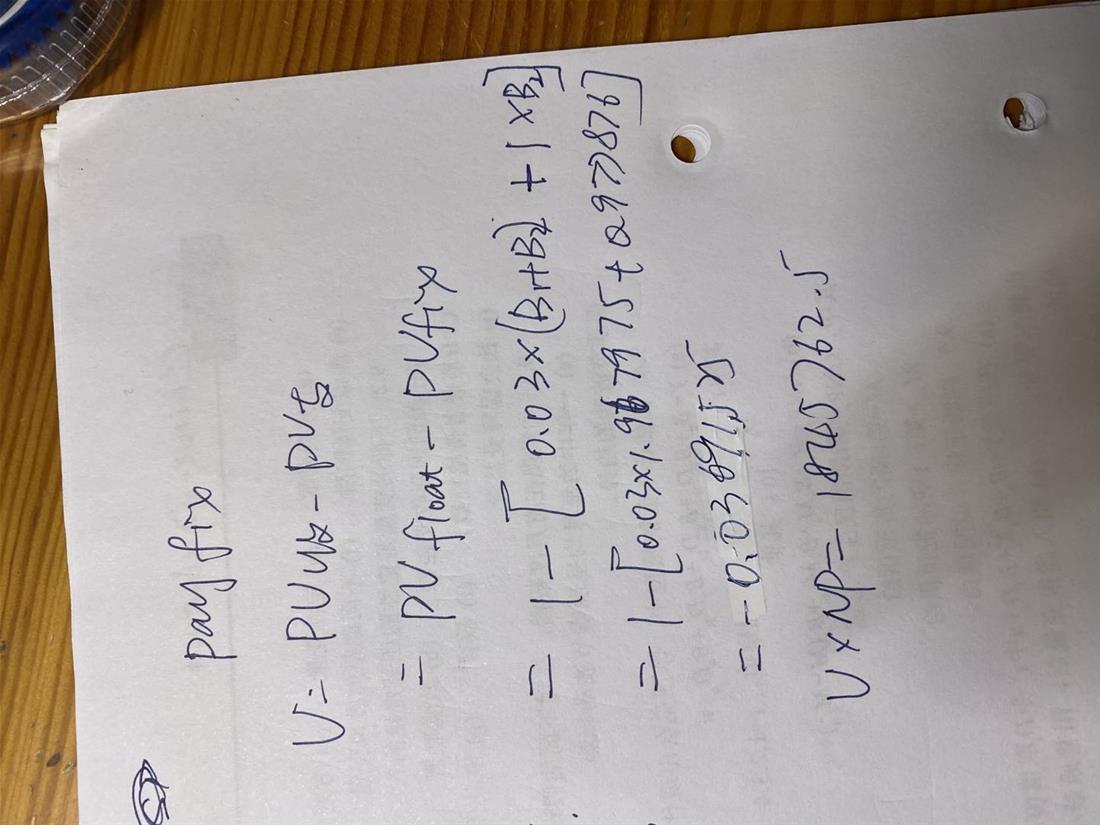 pay fix
V = PV收 - PV付
= PV float - PV fix
= 1 - [ 0.03 × (B1+B2) + 1 × B2]
= 1 - [0.03×1.967975 + 0.977876]
= - 0.03691525
V × NP = 1845762.5